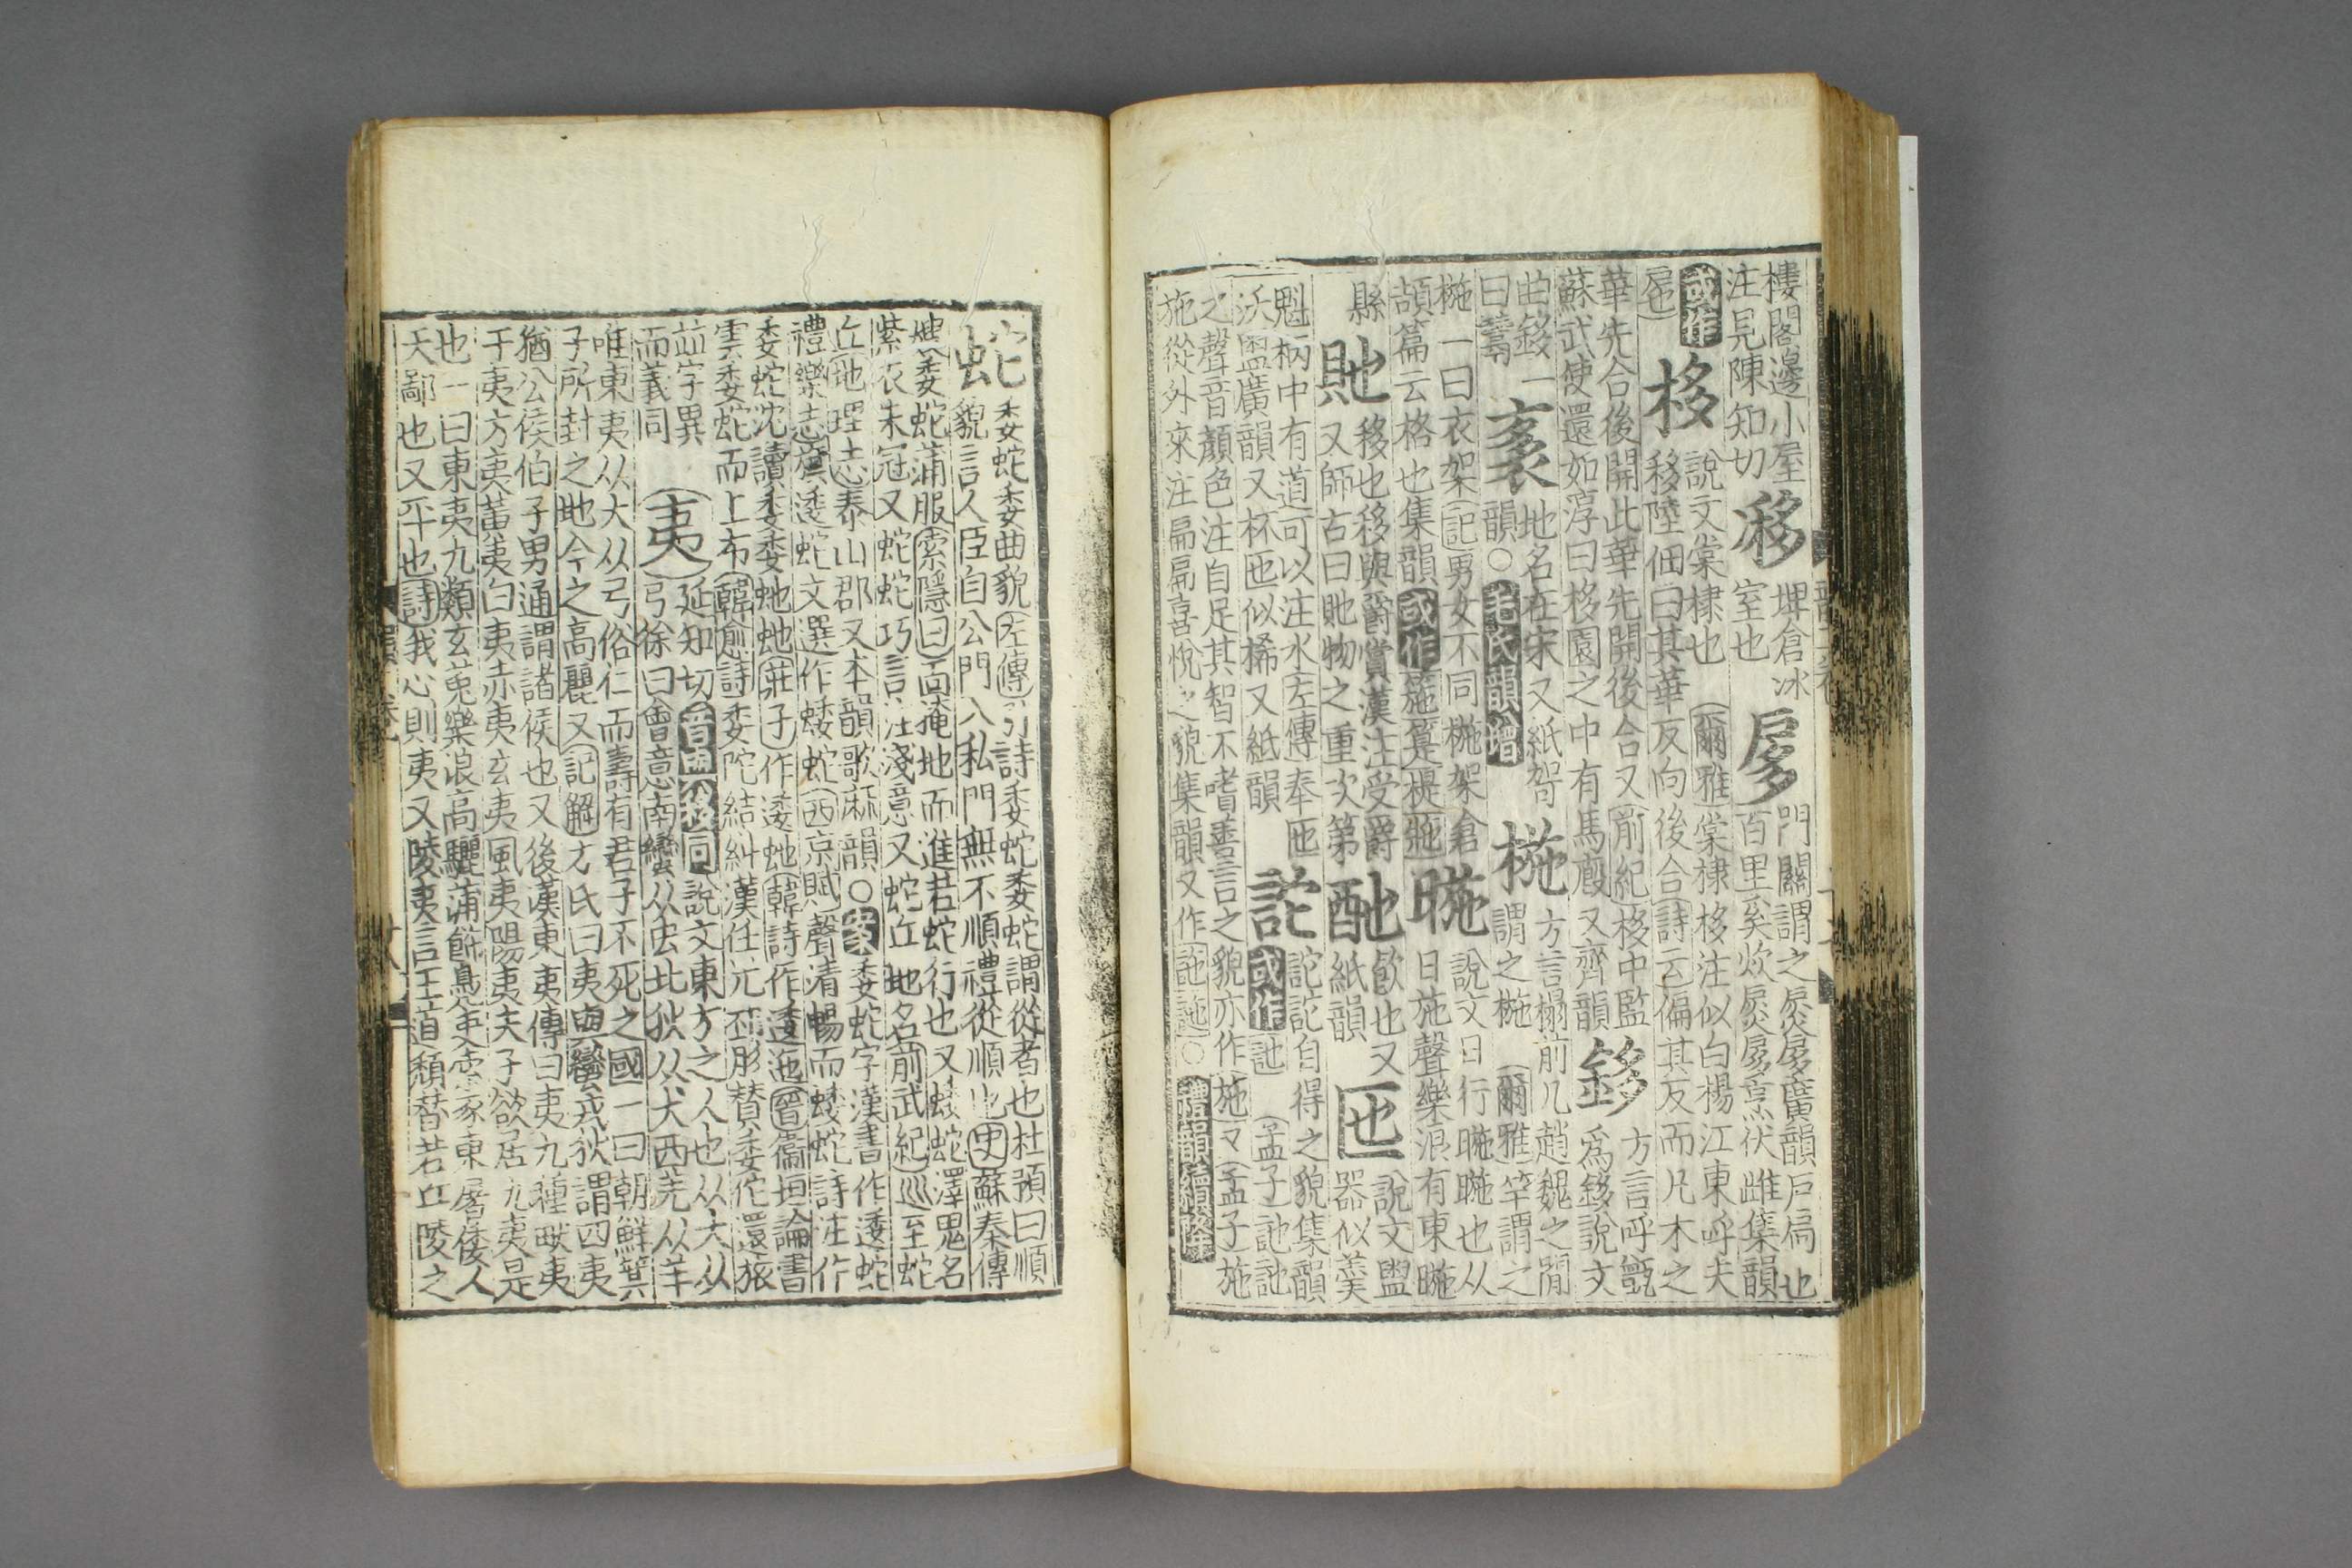 樓閣邊小屋
注見陳知切
㢋
埤倉冰
室也
扅
門關謂之扊扅廣韻戶扃也
百里奚炊扊扅烹伏雌集韻
或作
栘
說文棠棣也
爾雅棠棣栘注似白楊江東呼夫
栘陸佃曰其華反向後合詩云偏其反而凡木之
華先合後開此華先開後合又前紀栘中監
蘇武使還如淳曰栘園之中有馬廏又齊韻
鉹
方言呼甑
爲鉹說文
曲鉹一
曰鬵
袲
地名在宋又紙哿
韻○毛氏韻增
椸
方言榻前几趙魏之間
謂之椸爾雅竿謂之
椸一曰衣架記男女不同椸架倉
頡篇云格也集韻或作箷
暆
說文日行暆暆也从
日施聲樂浪有東暆
縣
貤
移也移與爵賞漢注受爵
又師古曰貤物之重次第
酏
飲也又
紙韻
匜
說文盥
器似羹
魁柄中有道可以注水左傳奉匜
沃盥廣韻又杯匜似桸又紙韻
詑
詑詑自得之貌集韻
或作訑孟子訑訑
之聲音顏色注自足其智不嗜善言之貌亦作施又孟子施
施從外來注扁扁喜悅之貌集韻又作訑
禮部韻續降
蛇
委蛇委曲貌左傳引詩委蛇委蛇謂從者也杜預曰順
貌言人臣自公門入私門無不順禮從順也史蘇秦傳
嫂委蛇蒲服索隱曰面掩地而進若蛇行也又蜲蛇澤鬼名
紫衣朱冠又蛇蛇巧言注淺意又蛇丘地名前武紀巡至蛇
丘地理志泰山郡又本韻歌麻韻○案委蛇字漢書作逶蛇
禮樂志旗逶蛇文選作蜲蛇西京賦聲清暢而蜲蛇詩注作
委蛇沈讀委委虵虵莊子作逶虵韓詩作逶迤晉衞垣論書
雲委蛇而上布韓愈詩委陀結糾漢任光邳肜贊委佗還旅
並字異
而義同
夷
延知切音與移同說文東方之人也从大从
弓徐曰會意南蠻从虫北狄从犬西羌从羊
唯東夷从大从弓俗仁而壽有君子不死之國一曰朝鮮箕
子所封之地今之高麗又記解尤氏曰夷與蠻戎狄謂四夷
猶公侯伯子男通謂諸侯也又後漢東夷傳曰夷九種畎夷
于夷方夷黃夷白夷赤夷玄夷風夷陽夷夫子欲居九夷是
也一曰東夷九類玄菟樂浪高驪蒲飾鳧臾索家東屠倭人
天鄙也又平也詩我心則夷又陵夷言王道頹替若丘陵之